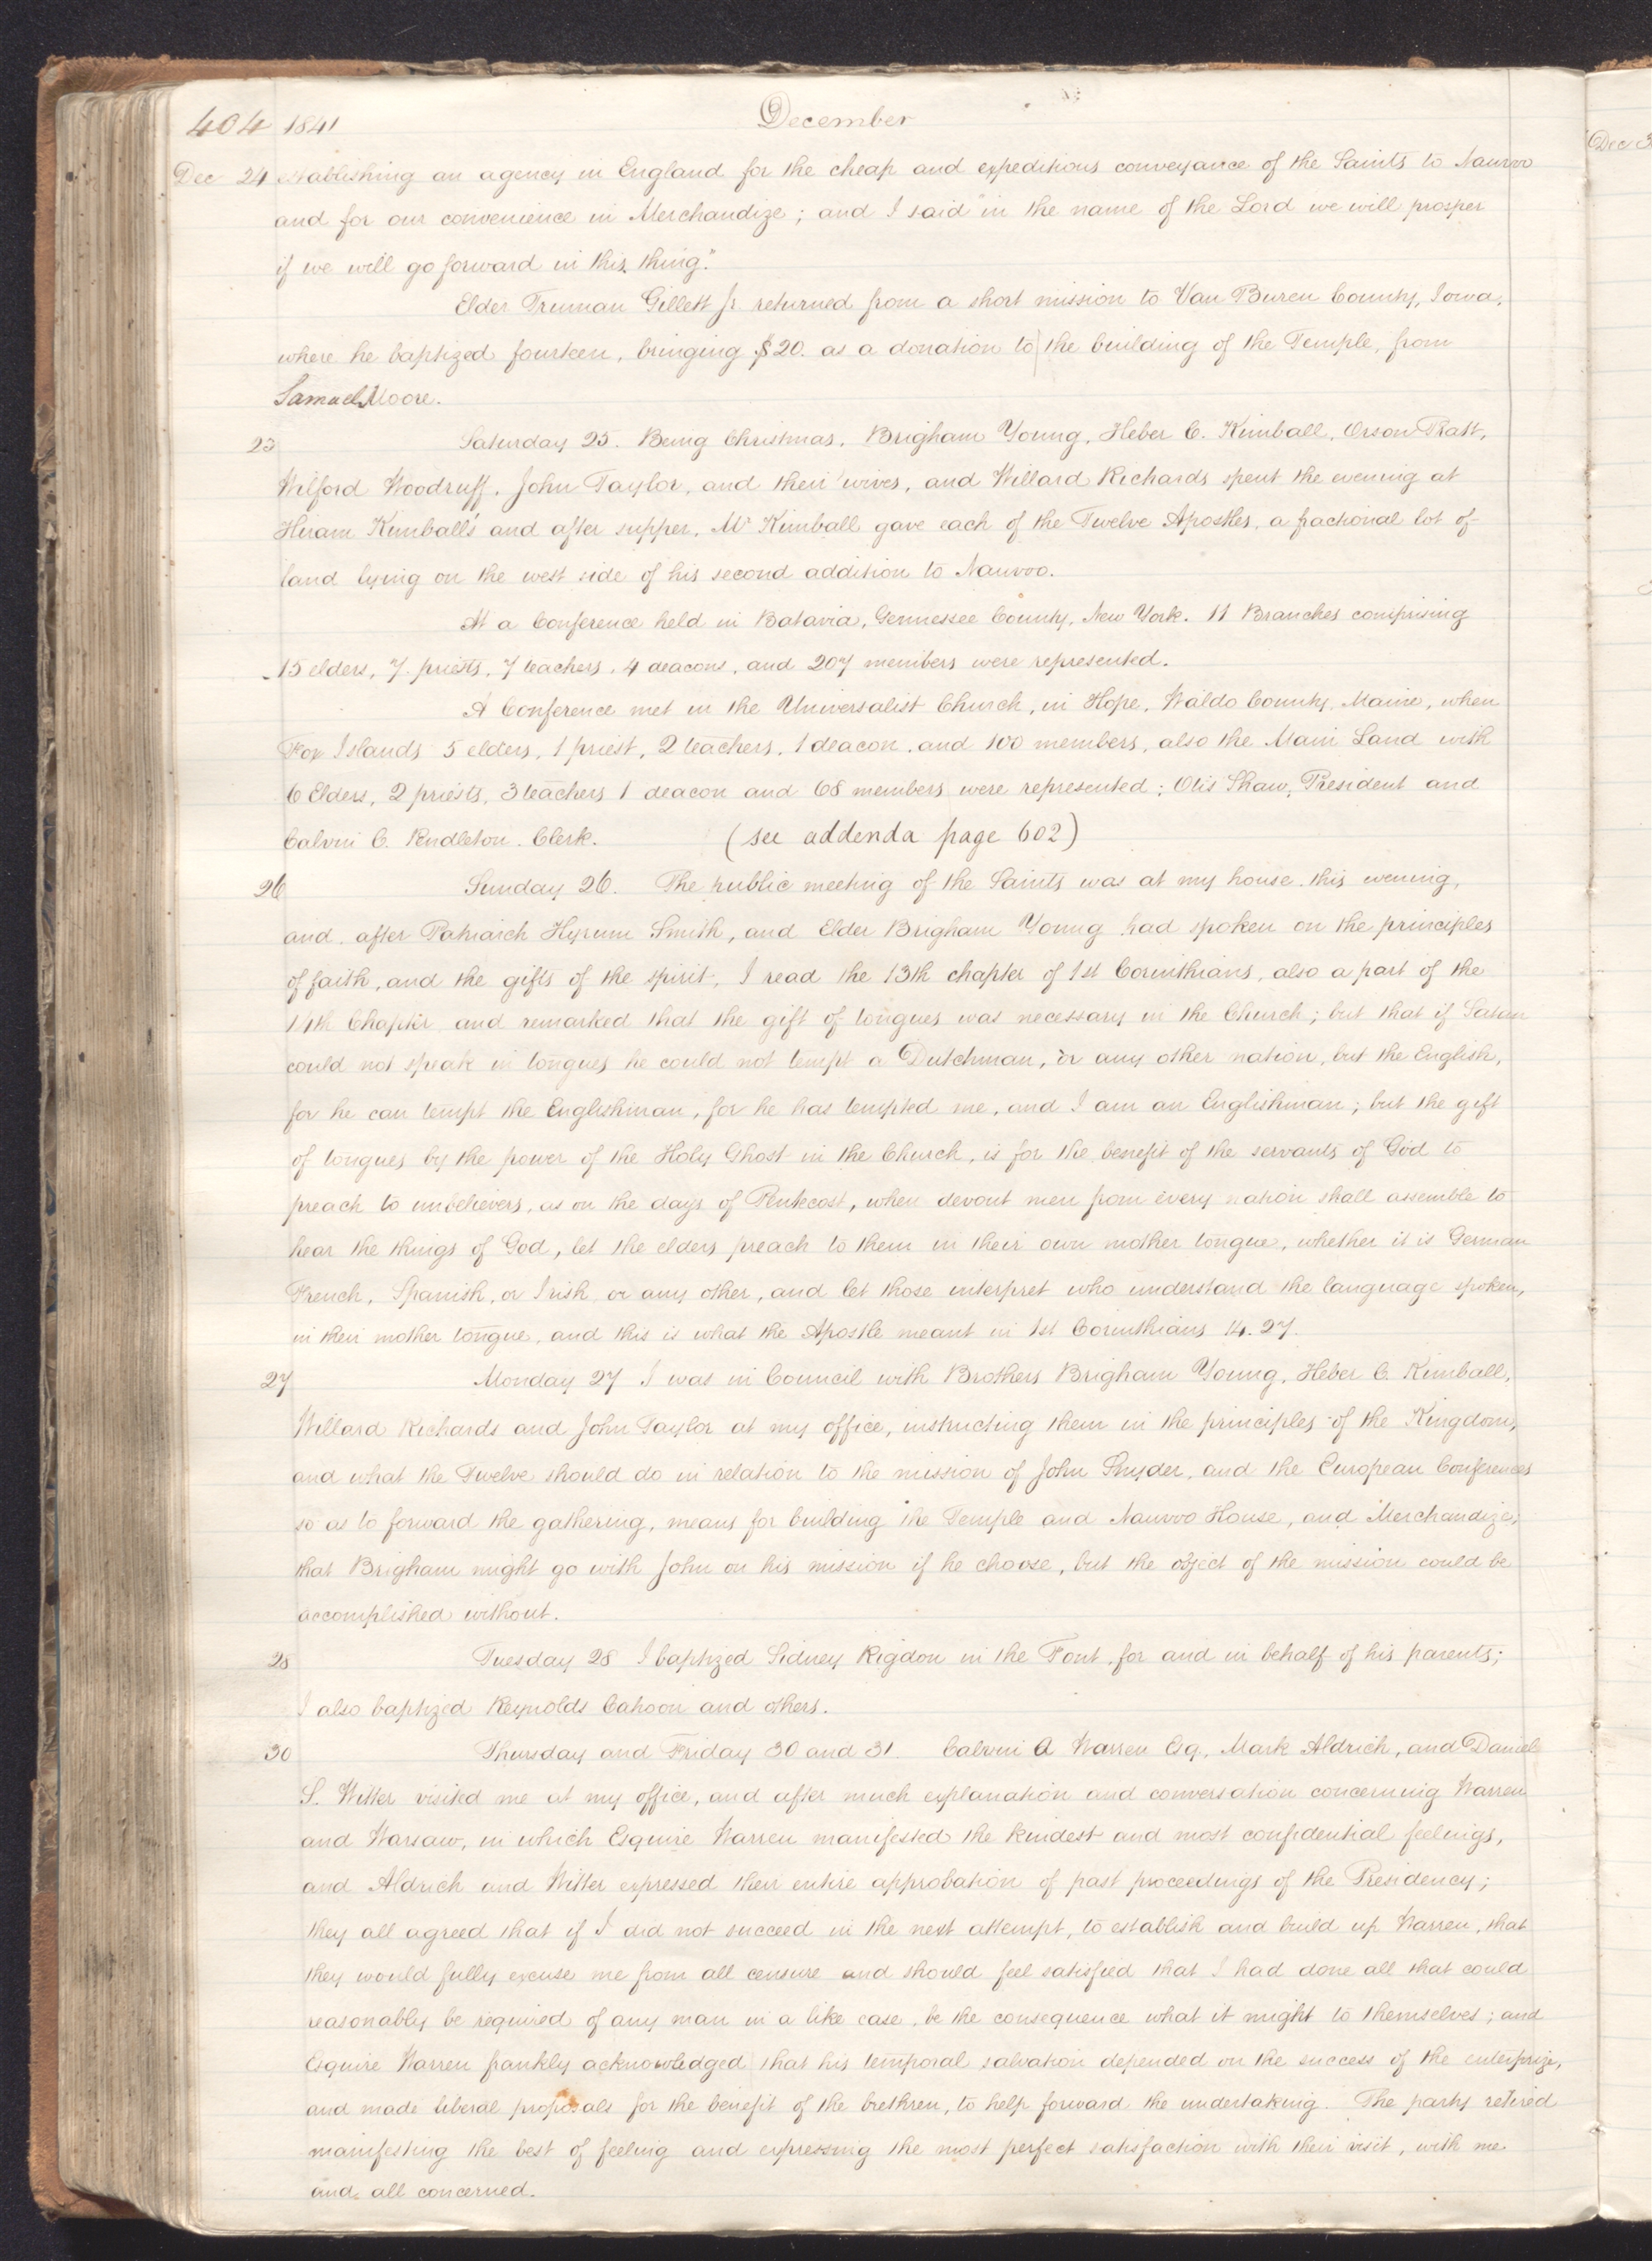 404 1841 December
Dec 24 establishing an agency in England for the cheap and expeditious conveyance of the Saints to Nauvoo
and for our convenience in Merchandize; and I said "in the name of the Lord we will prosper
if we will go forward in this thing."
Elder Truman Gillett Jr returned from a short mission to Van Buren County, Iowa,
where he baptized fourteen, bringing $20. as a donation to the building of the Temple, from
Samuel Moore.
25 Saturday 25. Being Christmas, Brigham Young, Heber C. Kimball, Orson Pratt,
Wilford Woodruff, John Taylor, and their wives, and Willard Richards spent the evening at
Hiram Kimball's and after supper, Mr Kimball gave each of the Twelve Apostles, a fractional lot of
land lying on the west side of his second addition to Nauvoo.
At a Conference held in Batavia, Gennessee County, New York. 11 Branches comprising
15 elders, 7 priests, 7 teachers, 4 deacons, and 207 members were represented.
A Conference met in the Universalist Church, in Hope, Waldo County, Maine, when
Fox Islands 5 elders, 1 priest, 2 teachers, 1 deacon, and 100 members, also the Main Land with
6 Elders, 2 priests, 3 teachers 1 deacon and 68 members were represented; Otis Shaw, President and
Calvin C. Pendleton. Clerk. (see addenda page 602)
26 Sunday 26. The public meeting of the Saints was at my house this evening,
and after Patriarch Hyrum Smith, and Elder Brigham Young had spoken on the principles
of faith, and the gifts of the spirit, I read the 13th chapter of 1st Corinthians, also a part of the
14th Chapter and remarked that the gift of tongues was necessary in the Church; but that if Satan
could not speak in tongues he could not tempt a Dutchman, or any other nation, but the English,
for he can tempt the Englishman, for he has tempted me, and I am an Englishman; but the gift
of tongues by the power of the Holy Ghost in the Church, is for the benefit of the servants of God to
preach to unbelievers, as on the days of Pentecost, when devout men from every nation shall assemble to
hear the things of God, let the elders preach to them in their own mother tongue, whether it is German
French, Spanish, or Irish or any other, and let those interpret who understand the language spoken,
in their mother tongue, and this is what the Apostle meant in 1st Corinthians 14.27.
27 Monday 27 I was in Council with Brothers Brigham Young, Heber C. Kimball,
Willard Richards and John Taylor at my office, instructing them in the principles of the Kingdom,
and what the Twelve should do in relation to the mission of John Snyder, and the European Conferences
so as to forward the gathering, means for building the Temple and Nauvoo House, and Merchandize;
that Brigham might go with John on his mission if he choose, but the object of the mission could be
accomplished without.
28 Tuesday 28 I baptized Sidney Rigdon in the Font, for and in behalf of his parents;
I also baptized Reynolds Cahoon and others.
30 Thursday and Friday 30 and 31. Calvin A Warren Esq., Mark Aldrich, and Daniel
S. Witter visited me at my office, and after much explanation and conversation concerning Warren
and Warsaw, in which Esquire Warren manifested the kindest and most confidential feelings,
and Aldrich and Witter expressed their entire approbation of past proceedings of the Presidency;
they all agreed that if I did not succeed in the next attempt, to establish and build up Warren, that
they would fully excuse me from all censure and should feel satisfied that I had done all that could
reasonably be required of any man in a like case, be the consequence what it might to themselves; and
Esquire Warren frankly acknowledged that his temporal salvation depended on the success of the enterprize,
and made liberal proposals for the benefit of the brethren, to help forward the undertaking. The party retired
manifesting the best of feeling and expressing the most perfect satisfaction with their visit, with me
and all concerned.
Dec 3